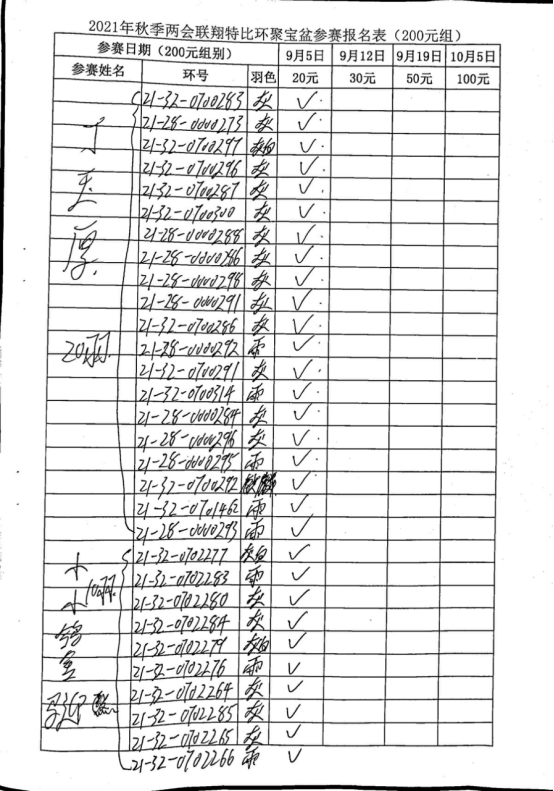 2021年秋季两会联翔特比环聚宝盆参赛报名表（200元组）
参赛日期（200元组别） 9月5日 9月12日 9月19日 10月5日
参赛姓名 环号 羽色 20元 30元 50元 100元
21-32-0700283 灰 ✓
21-28-0000273 灰 ✓
21-32-0700297 灰白 ✓
21-32-0700296 灰 ✓
21-32-0700287 灰 ✓
21-32-0700300 灰 ✓
21-28-0000288 灰 ✓
21-28-0000286 灰 ✓
21-28-0000298 灰 ✓
21-28-0000291 灰 ✓
21-32-0700286 灰 ✓
20羽 21-28-0000292 雨 ✓
21-32-0700291 灰 ✓
21-32-0700314 雨 ✓
21-28-0000284 灰 ✓
21-28-0000296 灰 ✓
21-28-0000295 雨 ✓
21-32-0700292 ✓
21-32-0701462 雨 ✓
21-28-0000293 雨 ✓
21-32-0702277 灰白 ✓
10羽 21-32-0702283 雨 ✓
21-32-0702280 灰 ✓
21-32-0702284 灰 ✓
21-32-0702279 灰白 ✓
21-32-0702276 雨 ✓
21-32-0702264 灰 ✓
21-32-0702285 灰 ✓
21-32-0702265 灰 ✓
21-32-0702266 雨 ✓